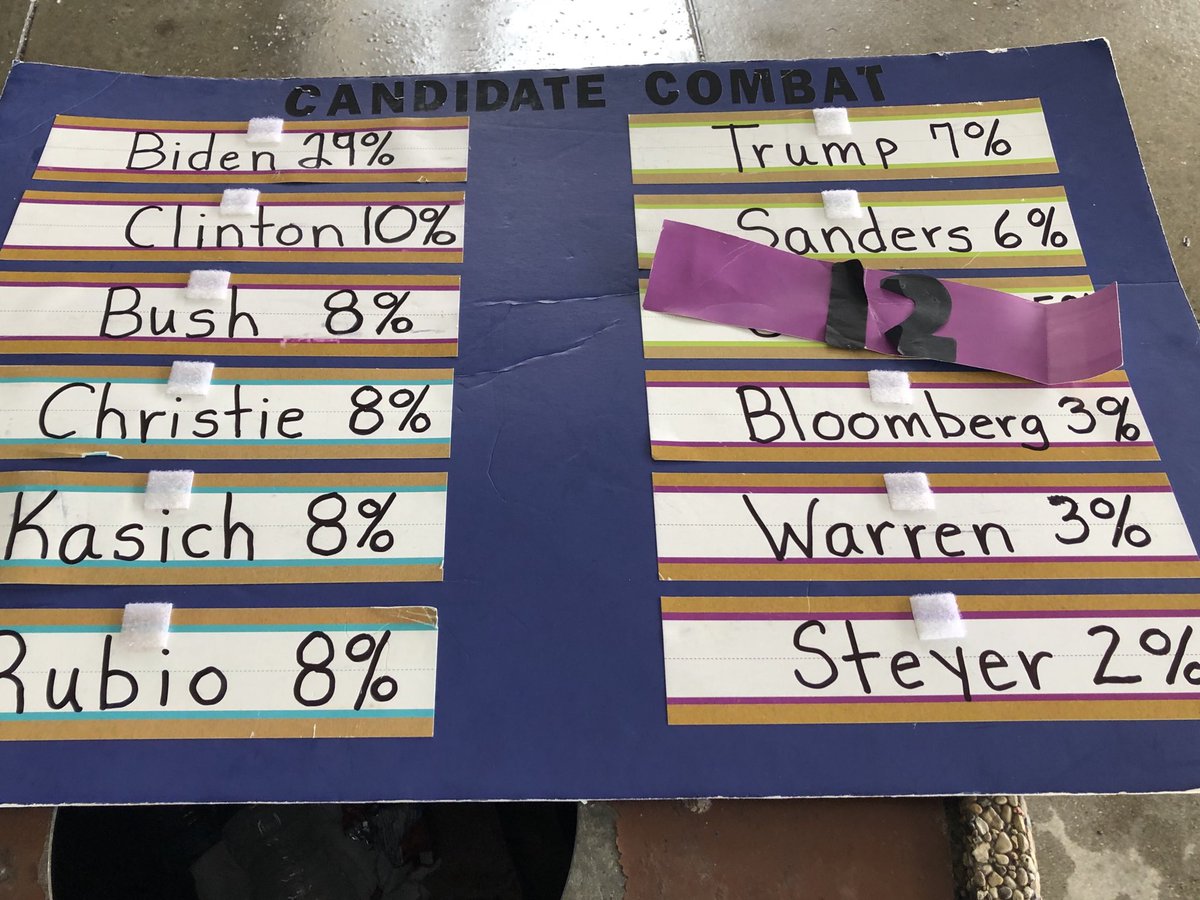 CANDIDATE COMBAT
Biden 29%
Clinton 10%
Bush 8%
Christie 8%
Kasich 8%
Rubio 8%
Trump 7%
Sanders 6%
12
Bloomberg 3%
Warren 3%
Steyer 2%